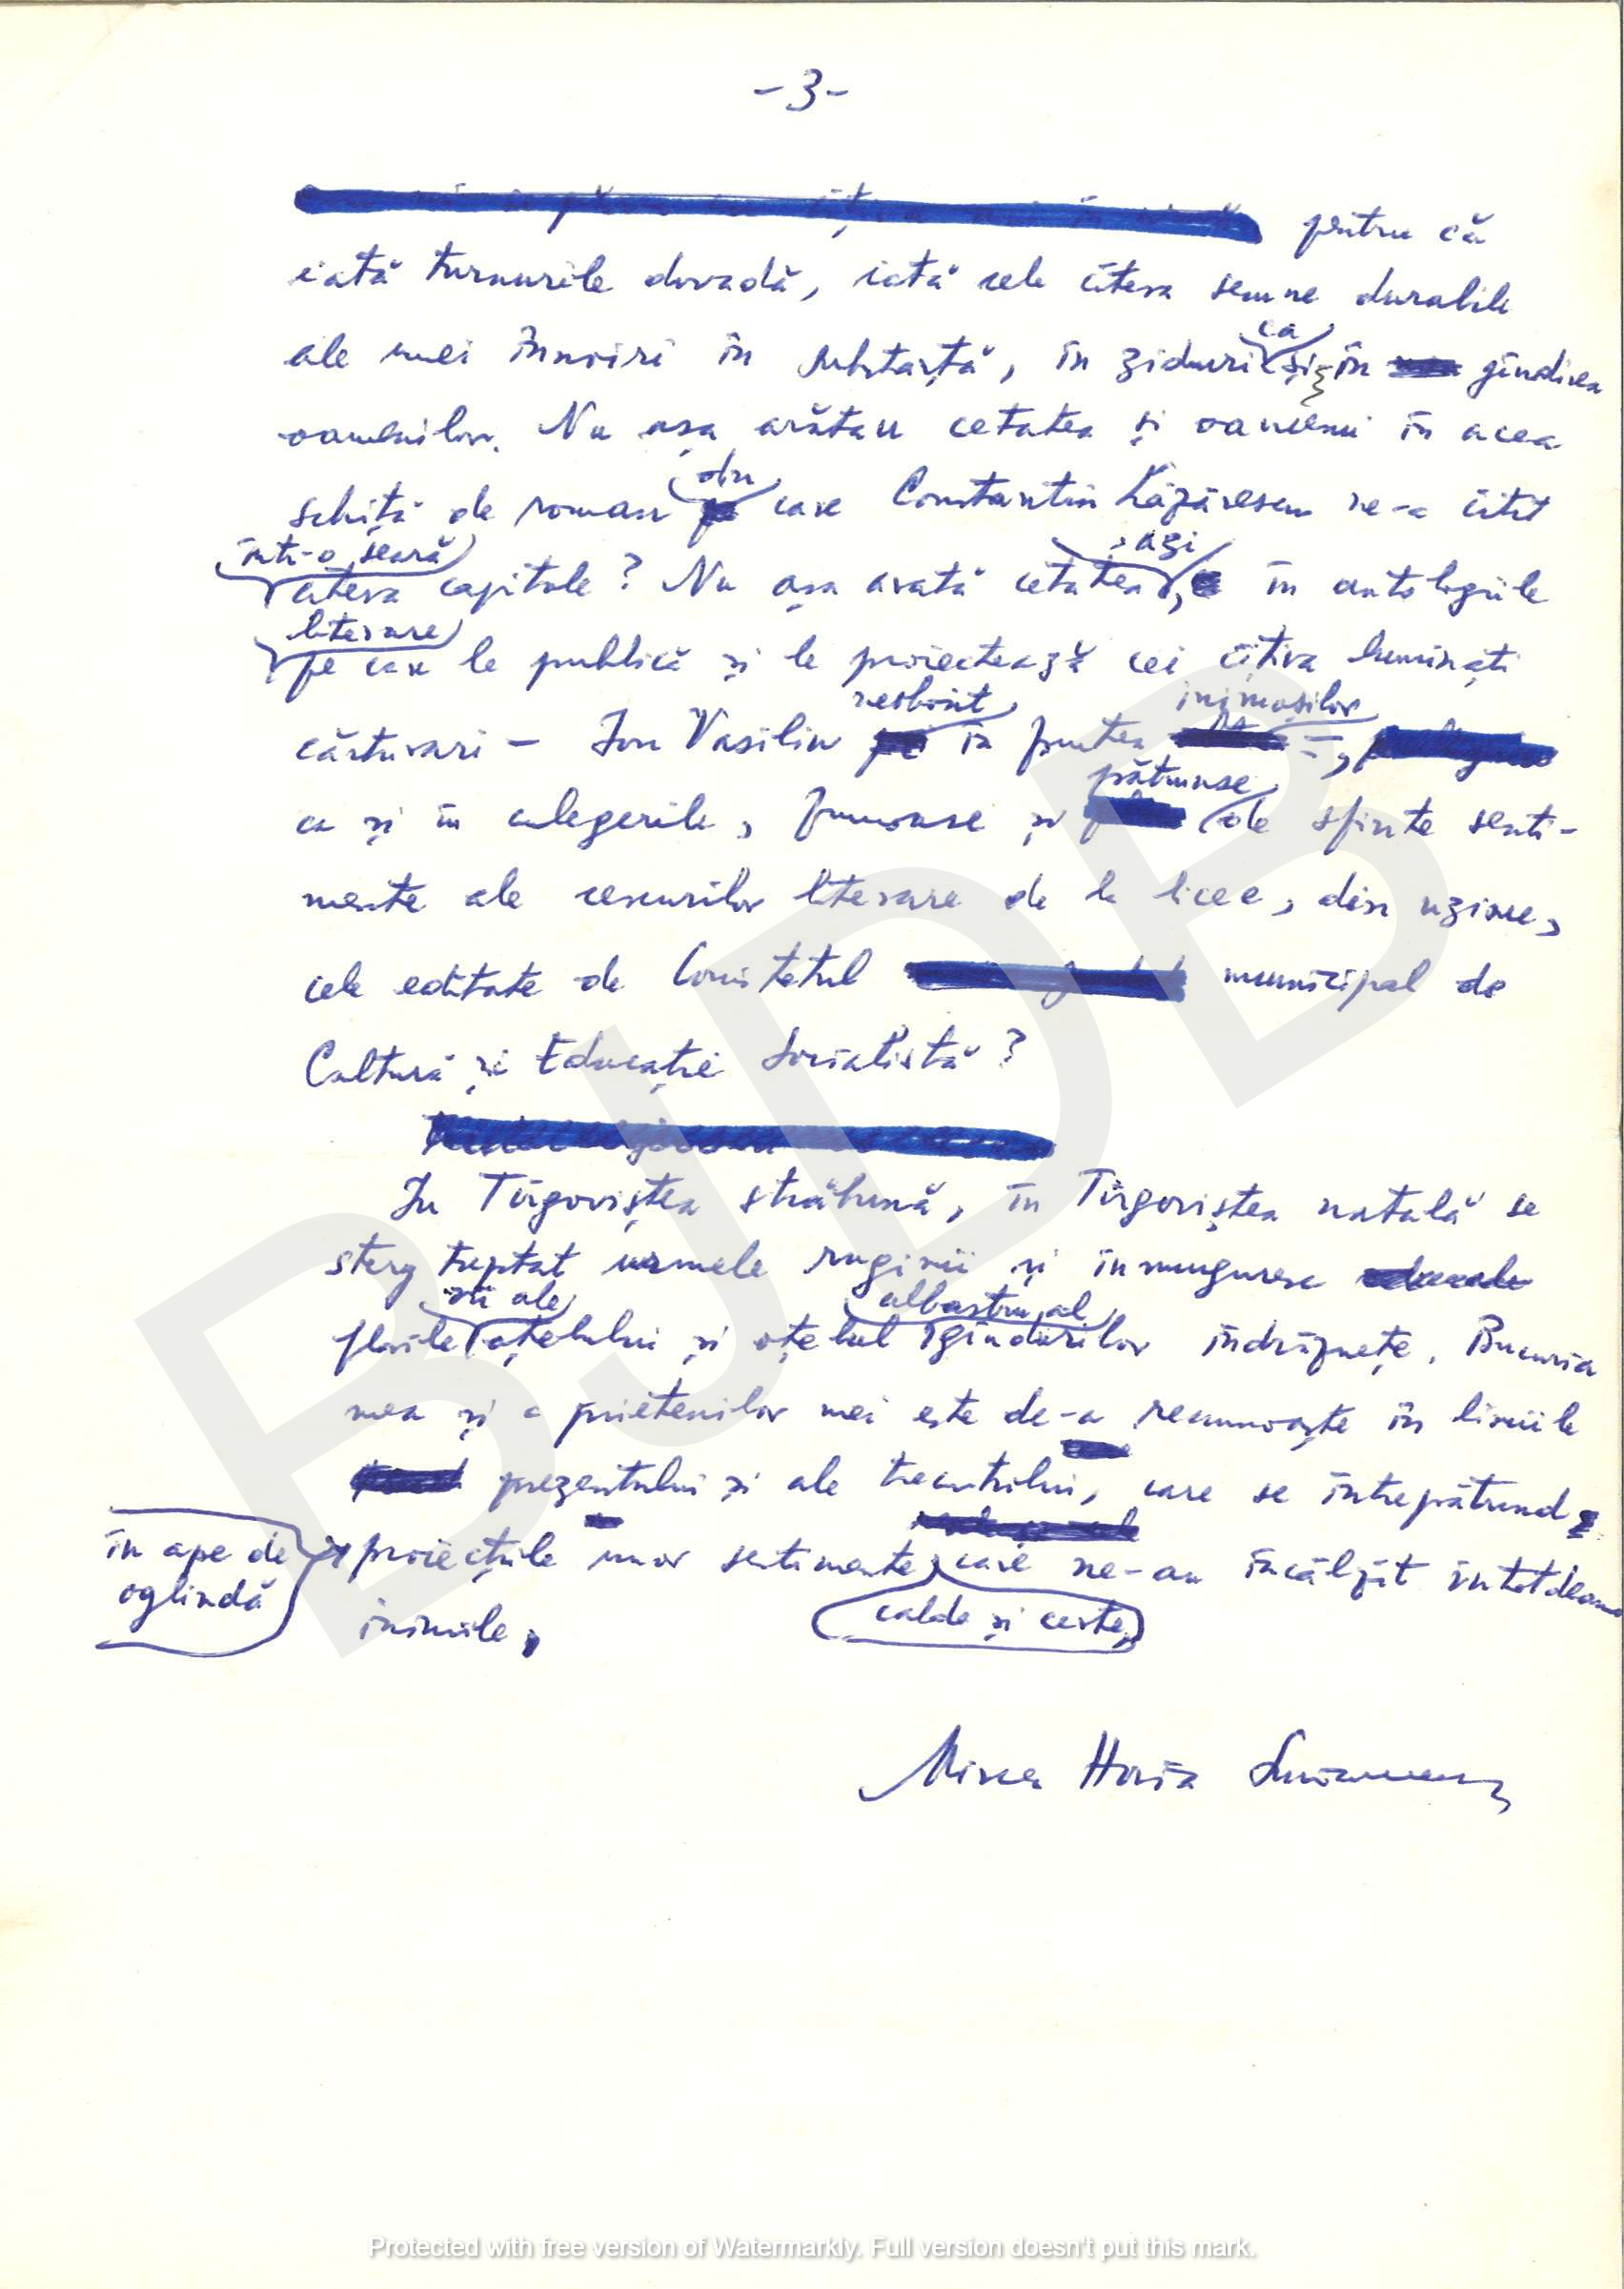 -3-
pentru că
iată turnurile dovadă, iată cele cîteva semne durabile
ca
ale unei înnoiri în substanță, în ziduri și în gîndirea
oamenilor. Nu așa arătau cetatea și oamenii în acea
din
schiță de roman care Constantin Lăzărescu ne-a citit
într-o seară
, azi
cîteva capitole? Nu așa arată cetatea, în antologiile
literare
pe care le publică și le proiectează cei cîțiva luminați
neobosit inimoșilor
cărturari - Ion Vasiliu în fruntea
pătrunse
ca și în culegerile, frumoase și de sfinte senti-
mente ale cercurilor literare de la licee, din uzine,
cele editate de Comitetul municipal de
Cultură și Educație Socialistă?
In Tîrgoviștea străbună, în Tîrgoviștea natală se
șterg treptat urmele ruginii și înmuguresc
albastru, al
florile oțelului și oțelul gîndurilor îndrăznețe. Bucuria
mea și a prietenilor mei este de-a recunoaște în liniile
prezentului și ale trecutului, care se întrepătrund
în ape de
oglindă
proiecțiile unor sentimente care ne-au încălzit întotdeauna
calde și certe,
inimile.
Mircea Horia Simionescu
BJDB
Protected with free version of Watermarkly. Full version doesn't put this mark.